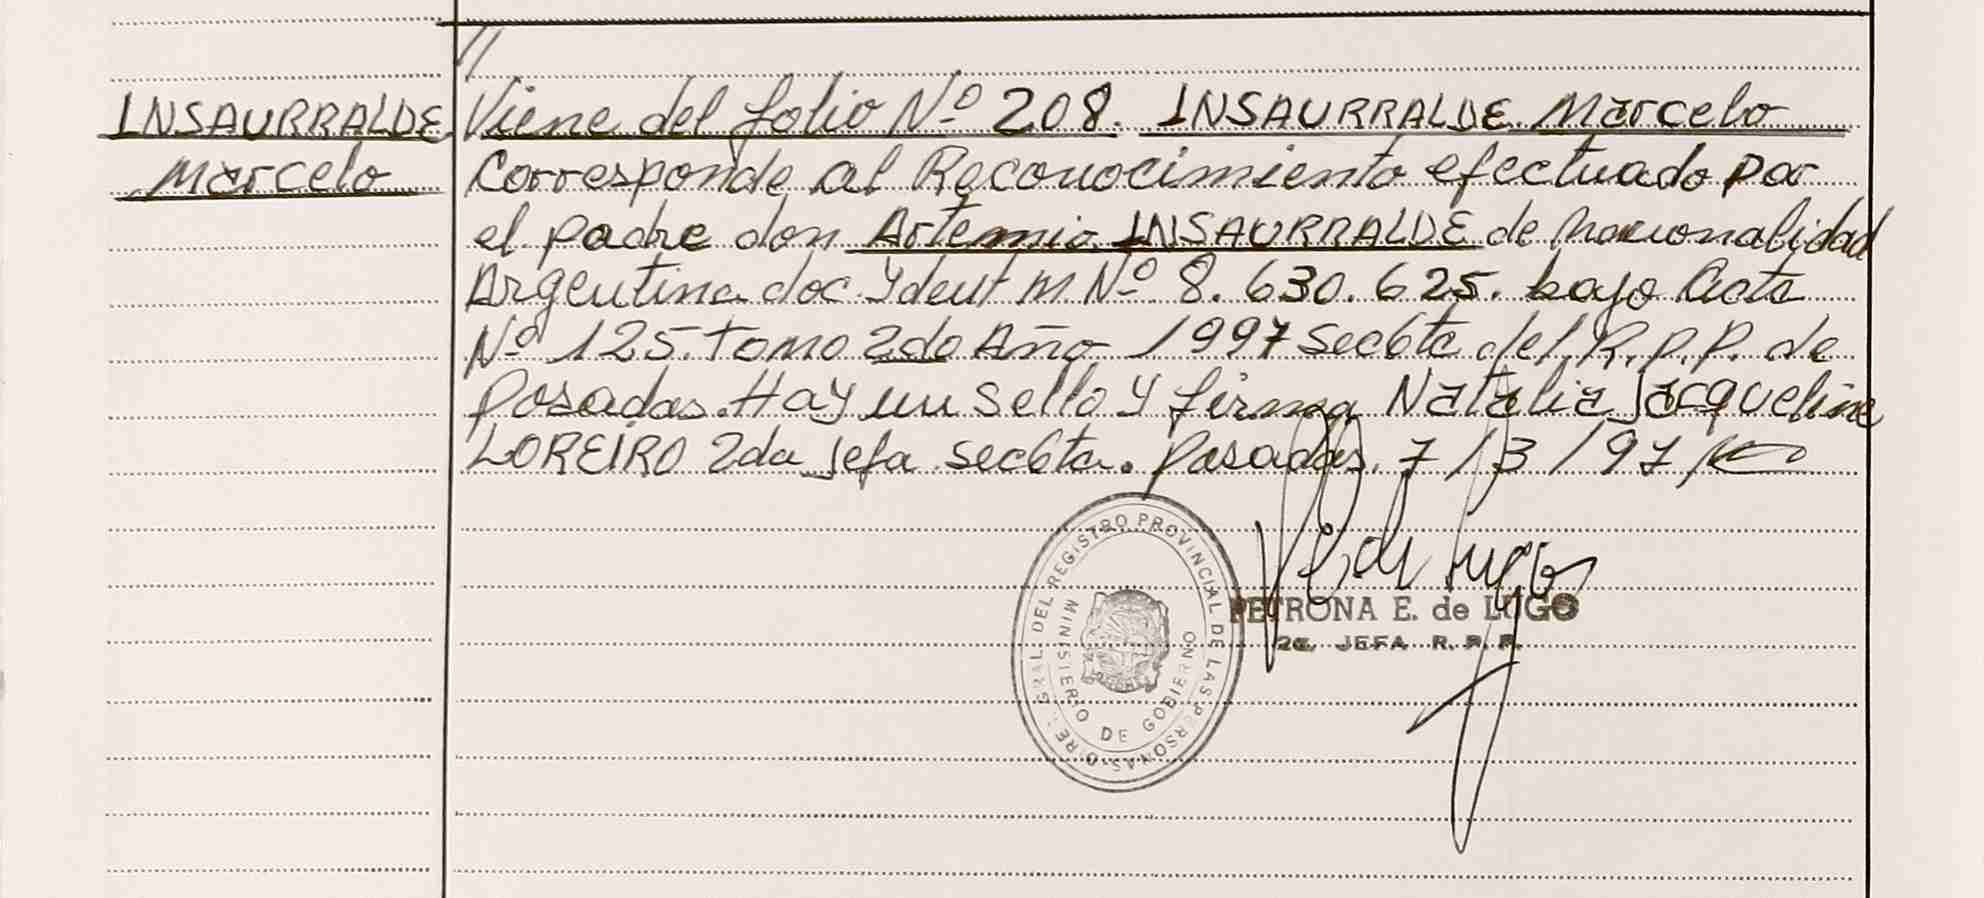 //
INSAURRALDE
Marcelo
Viene del folio Nº 208. INSAURRALDE Marcelo
Corresponde al Reconocimiento efectuado por
el padre don Artemio INSAURRALDE de nacionalidad
Argentina doc. Ydent M. Nº 8.630.625. bajo Acta
Nº 125. Tomo 2do Año 1997 sec6ta del R.P.P. de
Posadas. Hay un sello y firma Natalia Jacqueline
LOREIRO 2da jefa sec6ta. Posadas. 7/3/97
DIREC. GRAL. DEL REGISTRO PROVINCIAL DE LAS PERSONAS
MINISTERIO DE GOBIERNO
PETRONA E. de LUGO
2a. JEFA R.P.P.